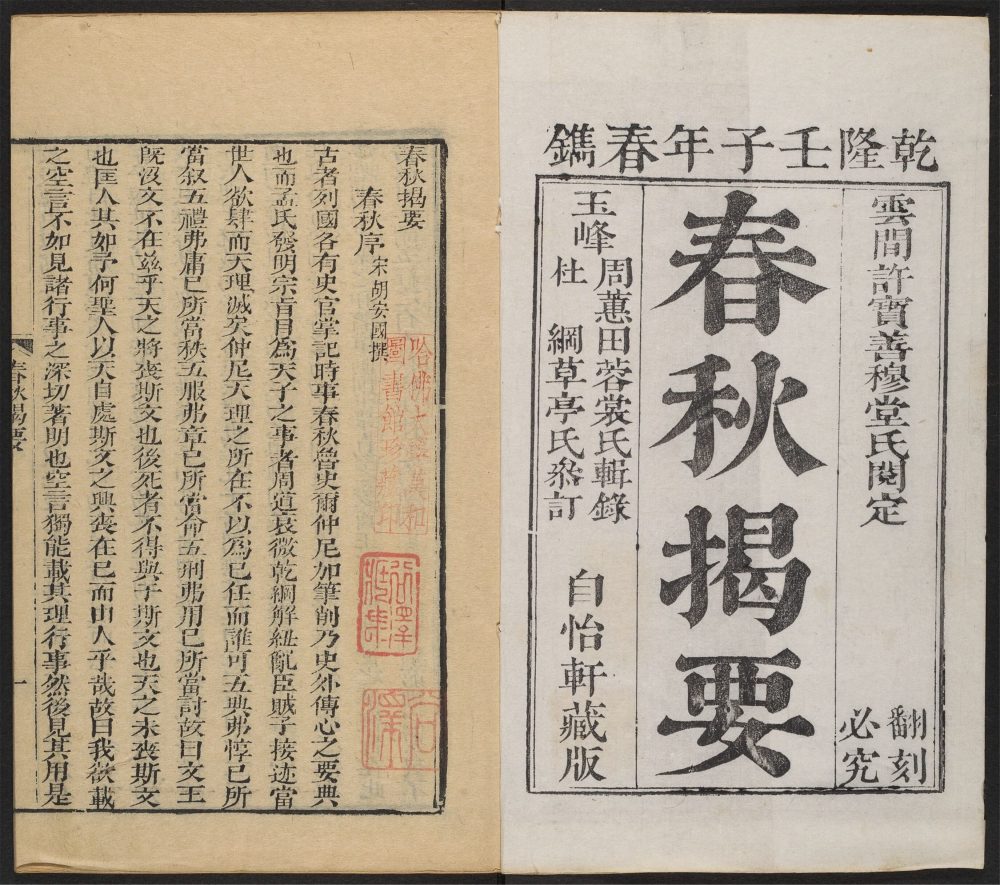 乾隆壬子年春鐫
雲間許寶善穆堂氏閱定
翻刻必究
春秋揭要
玉峰
周蕙田蓉裳氏輯錄
杜綱草亭氏叅訂
自怡軒藏版
春秋揭要
春秋序 宋胡安國撰
古者列國各有史官掌記時事春秋魯史爾仲尼加筆削乃史外傳心之要典
也而孟氏發明宗㫖目爲天子之事者周道衰微乾綱解紐亂臣賊子接迹當
世人欲肆而天理滅矣仲尼天理之所在不以爲已任而誰可五典弗惇已所
當叙五禮弗庸已所當秩五服弗章已所當命五刑弗用已所當討故曰文王
旣沒文不在兹乎天之將喪斯文也後死者不得與于斯文也天之未喪斯文
也匡人其如予何聖人以天自處斯文之興喪在已而由人乎哉故曰我欲載
之空言不如見諸行事之深切著明也空言獨能載其理行事然後見其用是
春秋揭要
一
哈佛大學漢和圖書館珍藏印